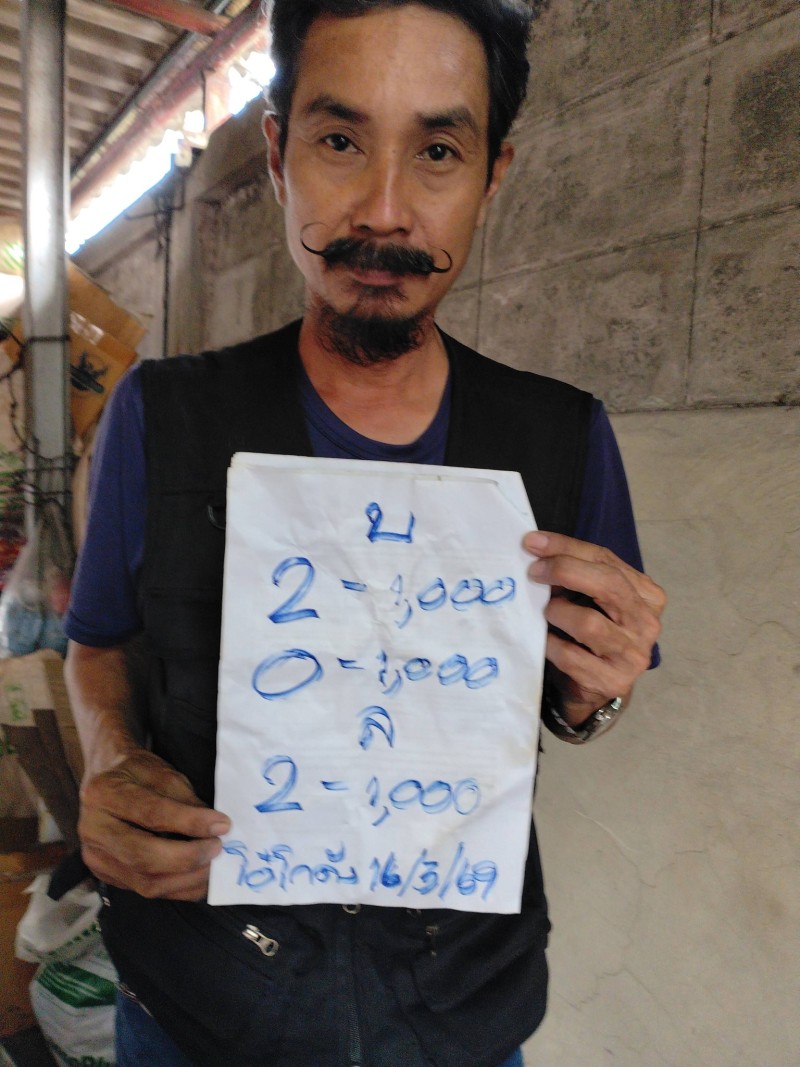 บ
2 = 1,000
0 = 1,000
ล
2 = 1,000
โอ๋โกดัง 16/3/69